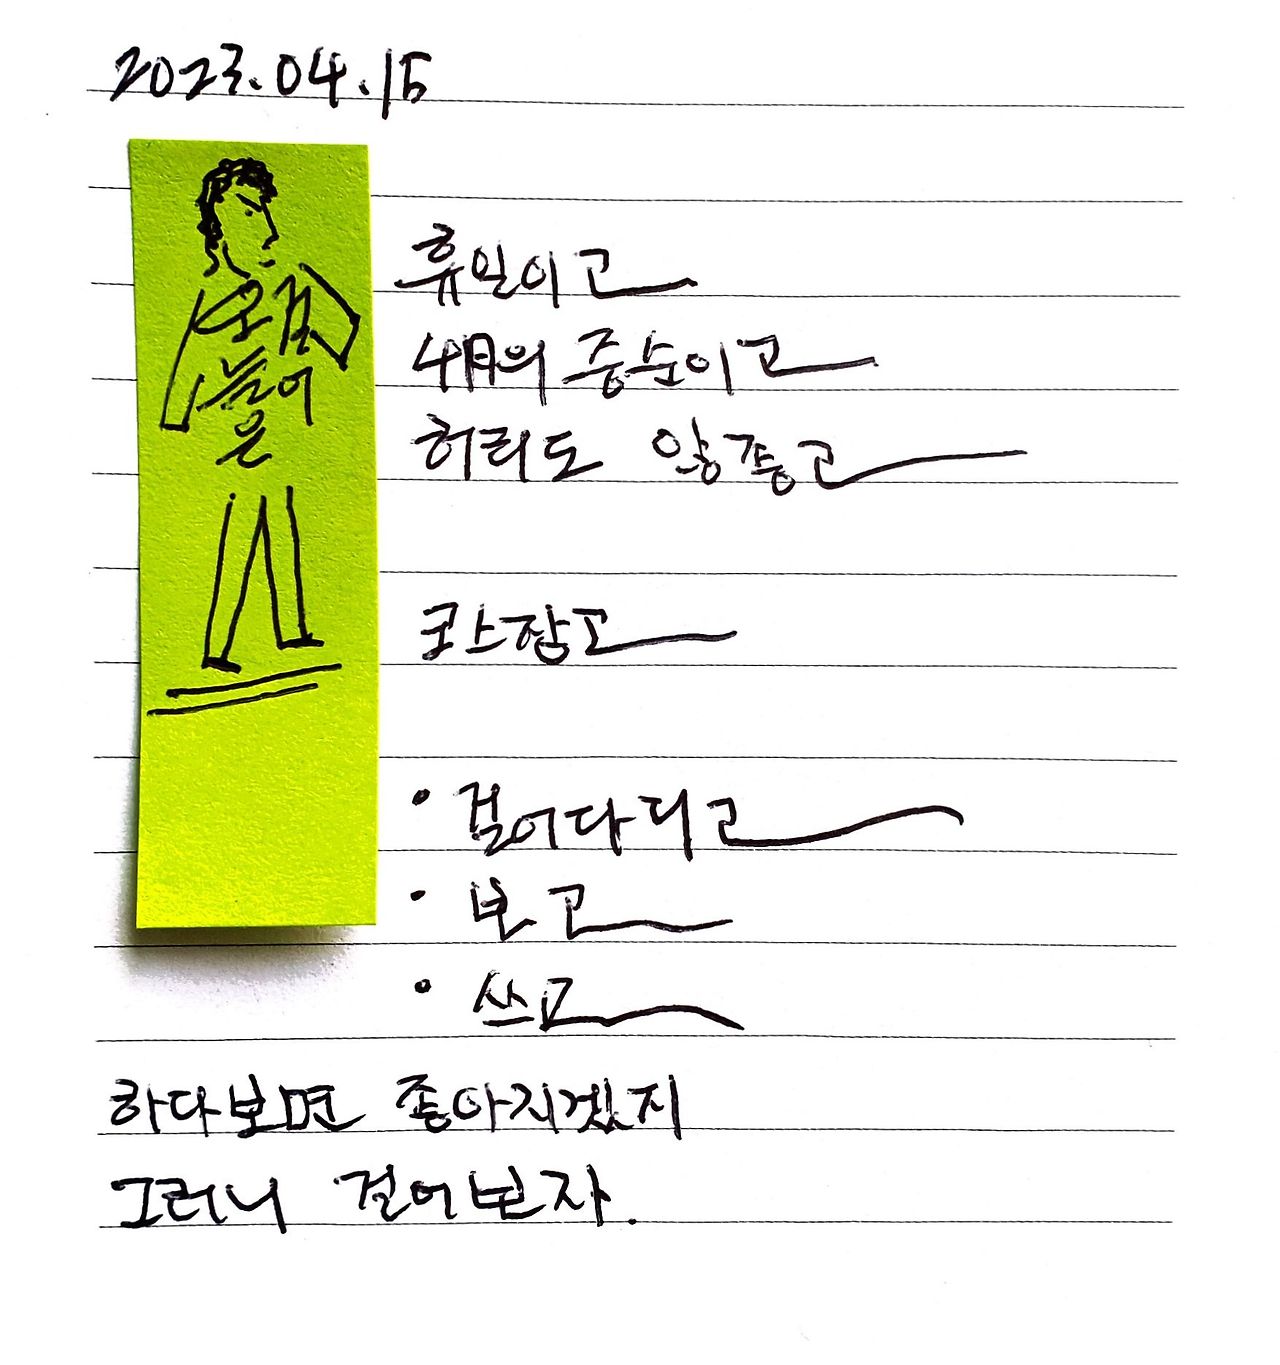 2023.04.15
오늘은
휴일이고
4月의 중순이고
허리도 않좋고
코스잡고
• 걸어다니고
• 보고
• 쓰고
하다보면 좋아지겠지
그러니 걸어보자.